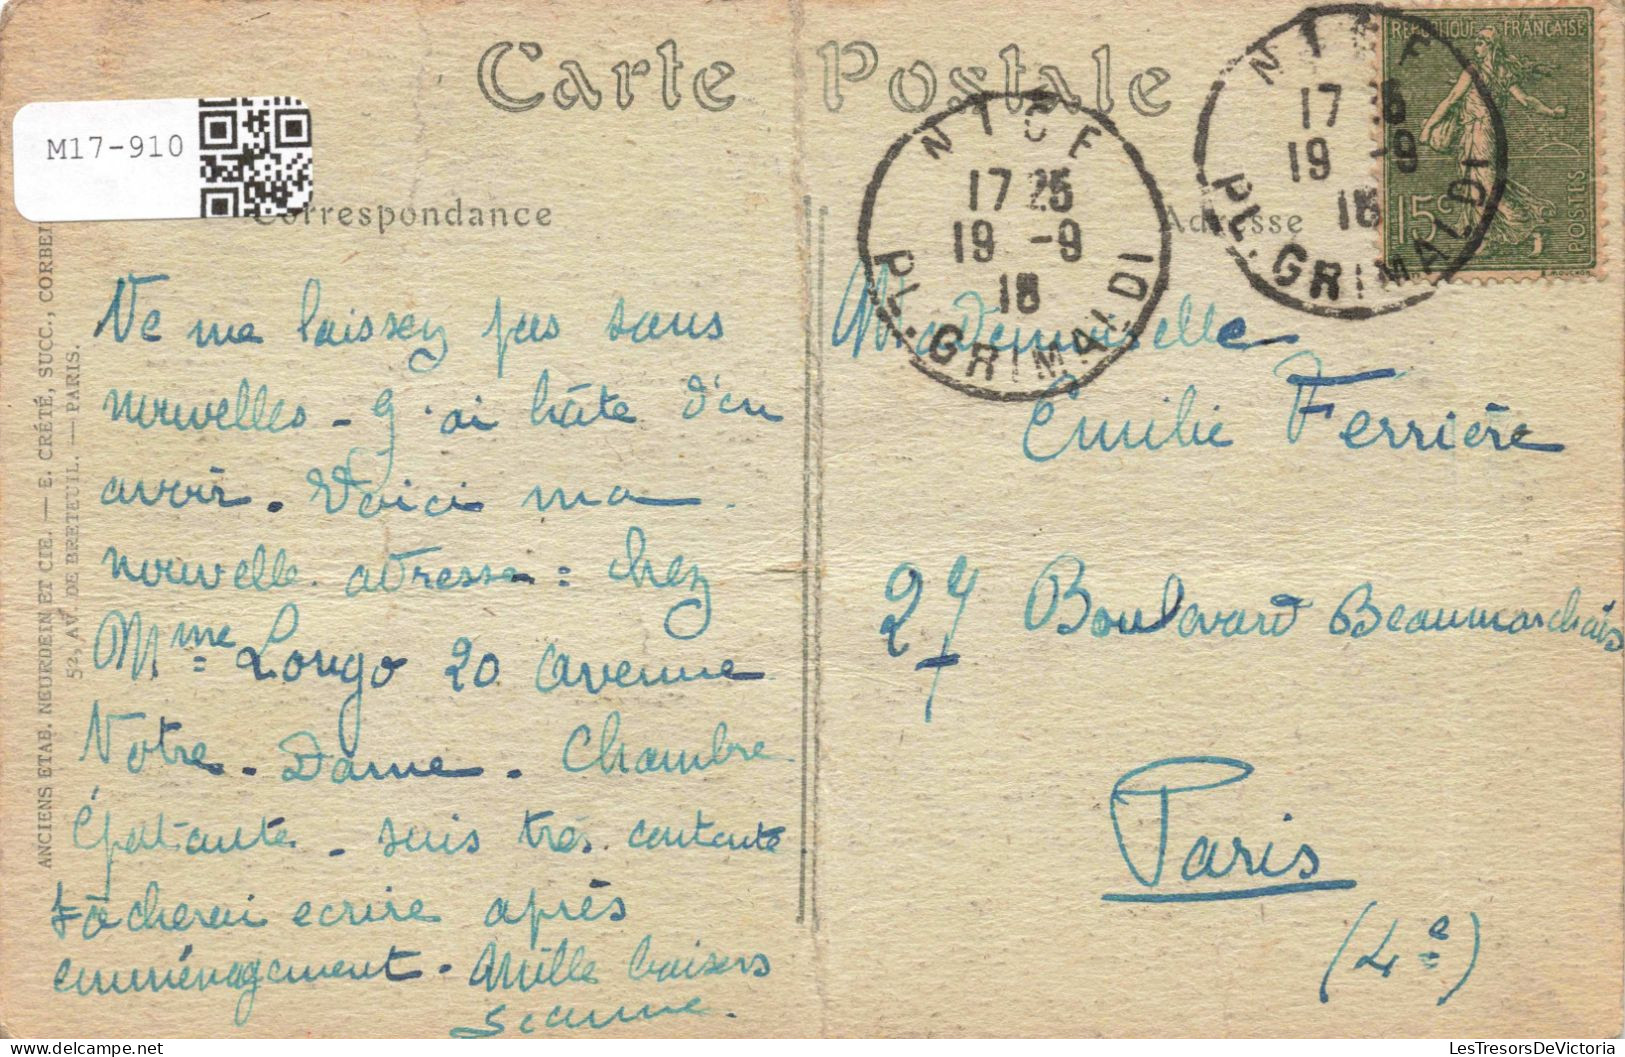 Carte Postale
M17-910
Correspondance
Adresse
REPUBLIQUE FRANÇAISE
15c
POSTES
E. MOUCHON
NICE
17 25
19 -9
18
PL. GRIMALDI
NICE
17 25
19 -9
18
PL. GRIMALDI
ANCIENS ETAB. NEURDEIN ET CIE. — E. CRÉTÉ, SUCC., CORBEIL
52, AV. DE BRETEUIL. — PARIS.
Ne me laissez pas sans
nouvelles - J'ai hâte d'en
avoir. Voici ma
nouvelle adresse = chez
Mme Longo 20 avenue
Notre-Dame. Chambre
Épatante - suis très contente
tâcherai ecrire après
emménagement - Mille baisers
Jeanne.
Mademoiselle
Émilie Ferrière
27 Boulevard Beaumarchais
Paris
(4e)
LesTresorsDeVictoria